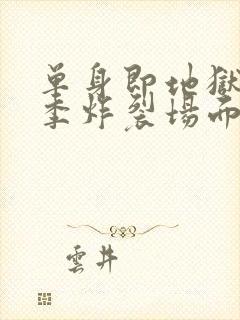 单身即地獄
季炸裂場面
雲井